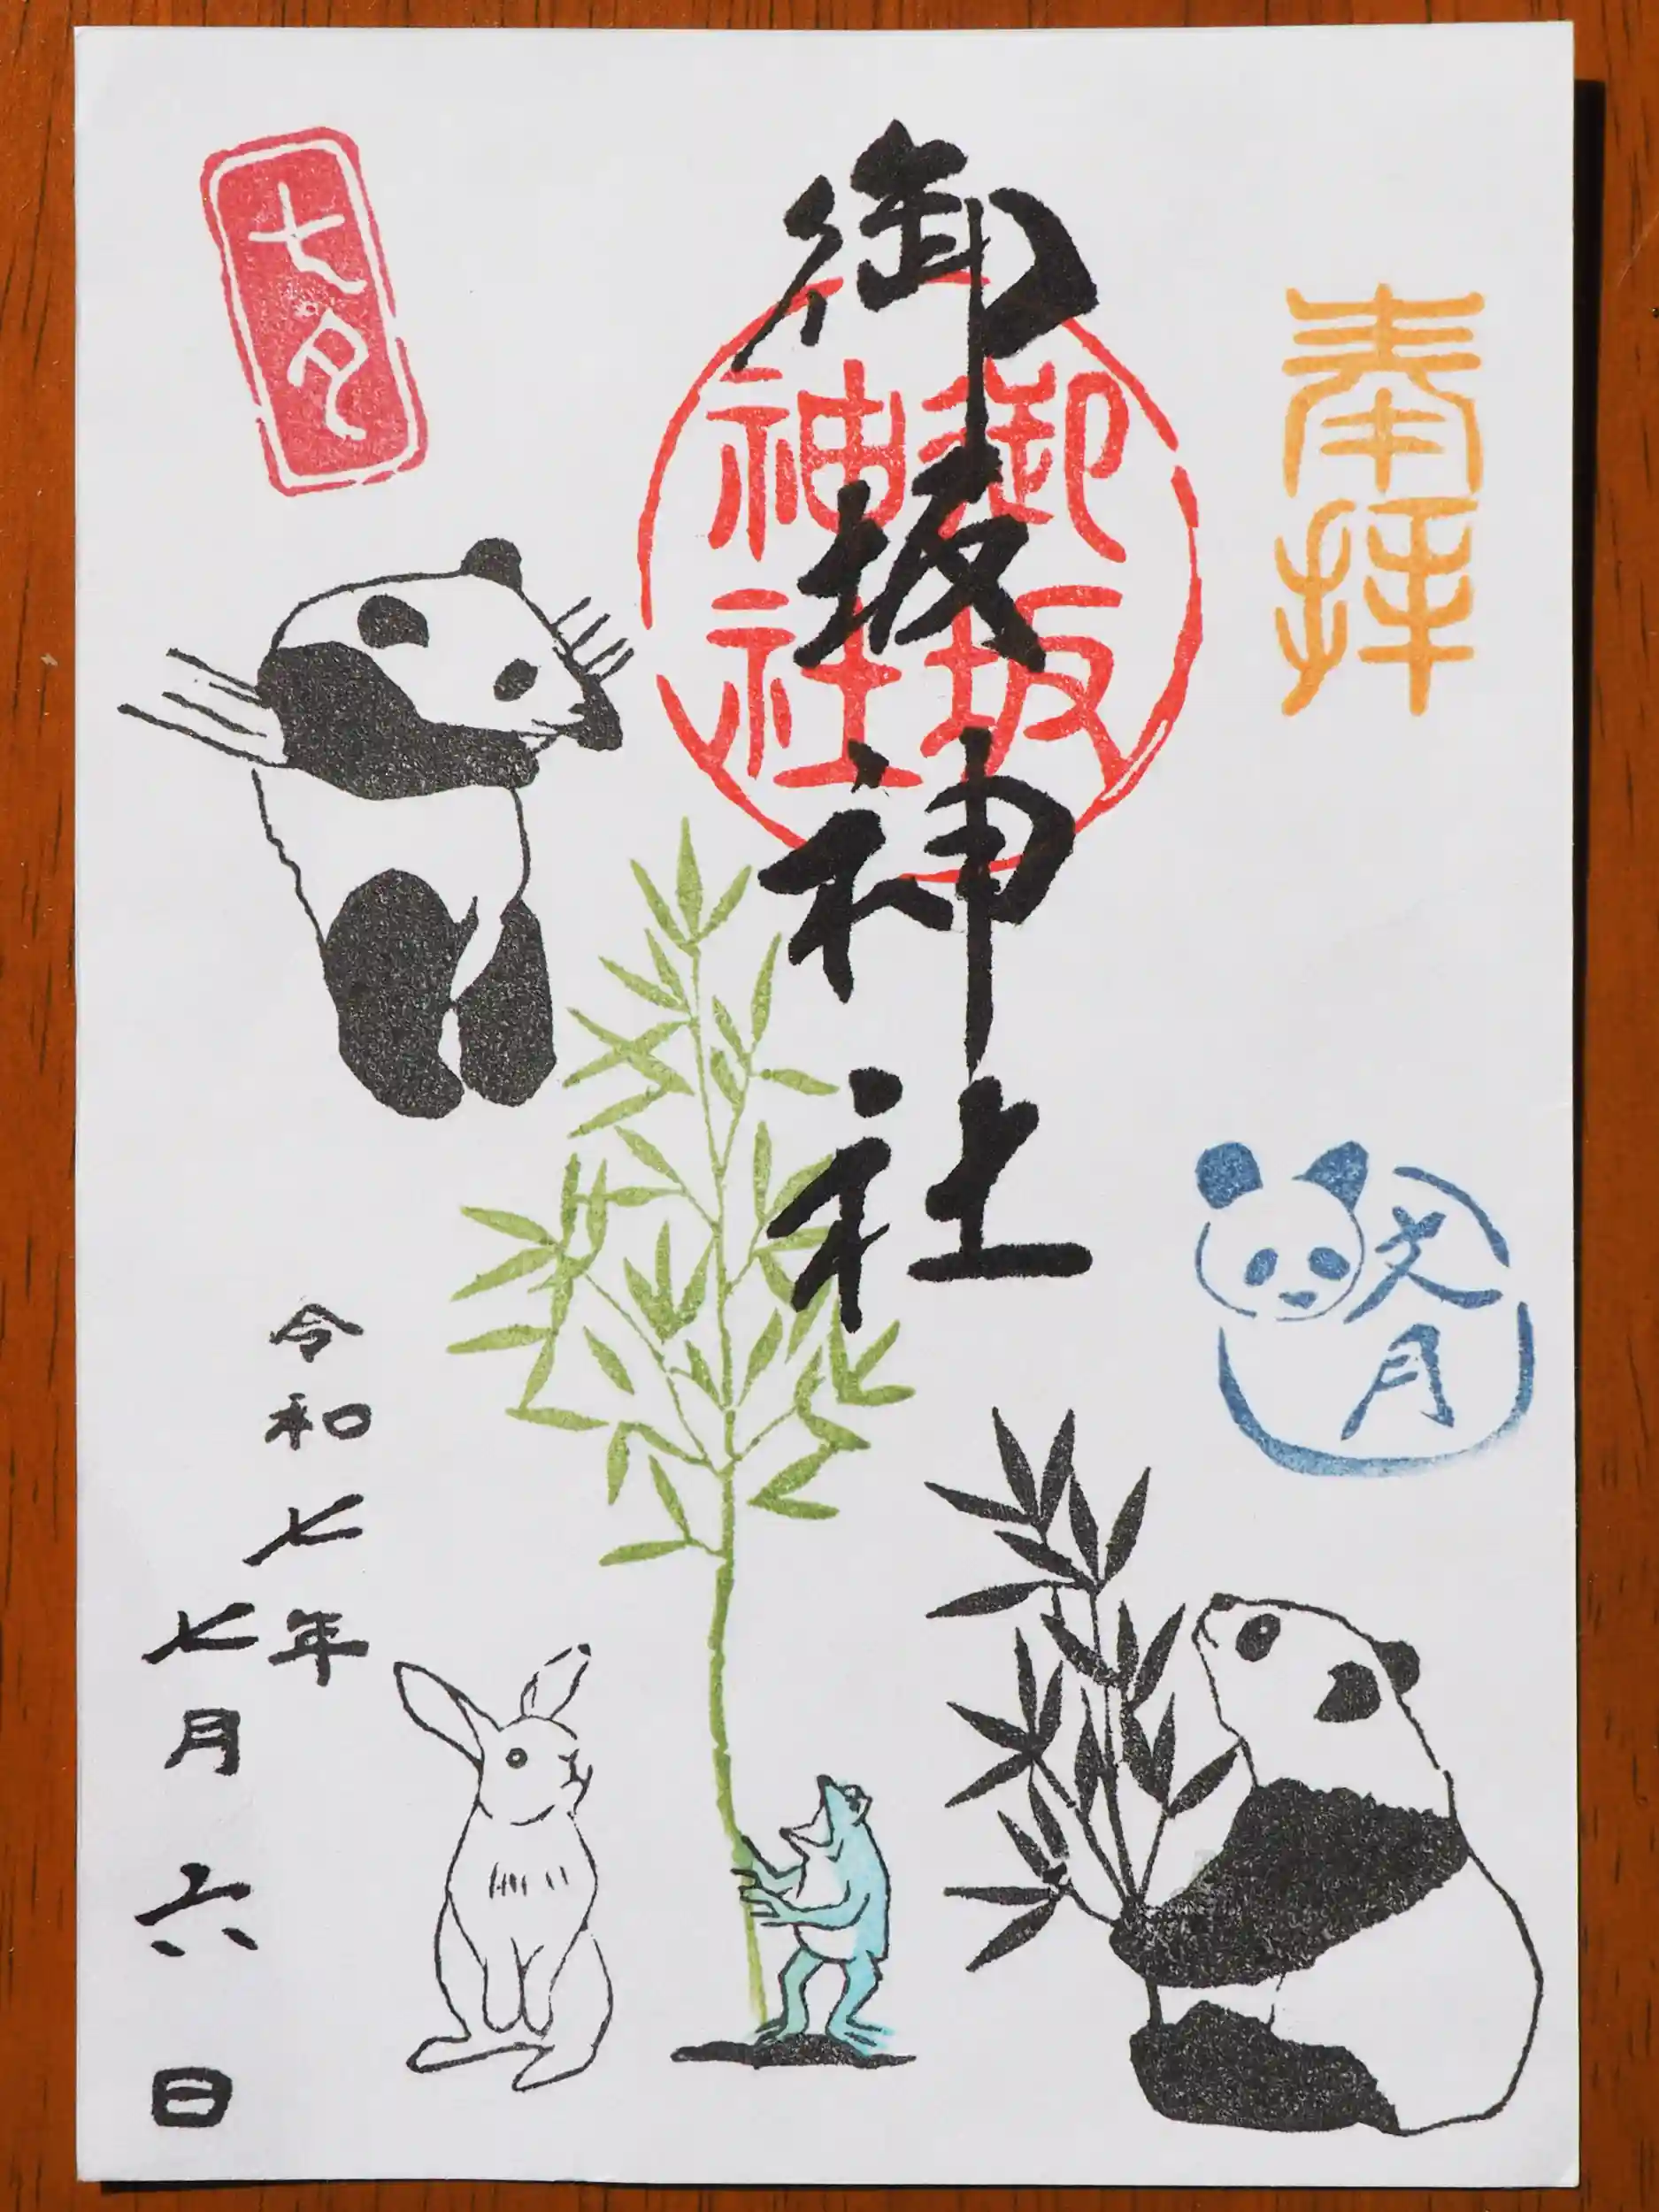 奉拝
文月
御坂神社
御坂神社
七夕
令和七年
七月六日